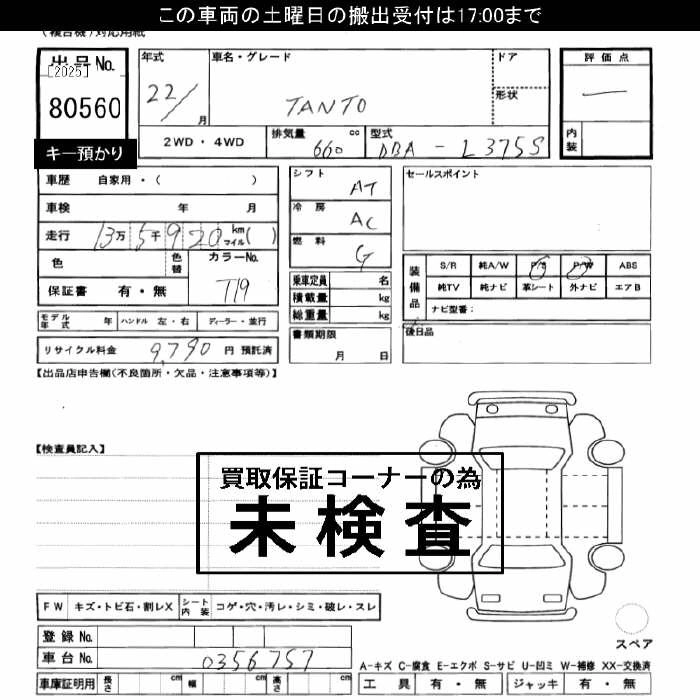 この車両の土曜日の搬出受付は17:00まで
(複合機)対応用紙
出品No.
[2025]
80560
キー預かり
年式 22/ 月
車名・グレード TANTO
ドア
形状
評価点
—
内装
2WD・4WD
排気量 660 cc
型式 DBA - L375S
車歴 自家用・( )
車検 年 月
走行 13万5千920 km マイル ( )
色 色替 カラーNo. T19
保証書 有・無
シフト AT
冷房 AC
燃料 G
乗車定員 名
積載量 kg
総重量 kg
セールスポイント
装備品
S/R 純A/W P/S P/W ABS
純TV 純ナビ 革シート 外ナビ エアB
ナビ型番:
モデル年式 年 ハンドル 左・右 ディーラー・並行
書類期限 月 日
後日品
リサイクル料金 9,790 円 預託済
【出品店申告欄(不良箇所・欠品・注意事項等)】
【検査員記入】
買取保証コーナーの為
未検査
FW キズ・トビ石・割レX シート内装 コゲ・穴・汚レ・シミ・破レ・スレ
スペア
登録No.
車台No. 0356757
A-キズ C-腐食 E-エクボ S-サビ U-凹ミ W-補修 XX-交換済
車庫証明用 長さ cm 幅 cm 高さ cm
工具 有・無 ジャッキ 有・無